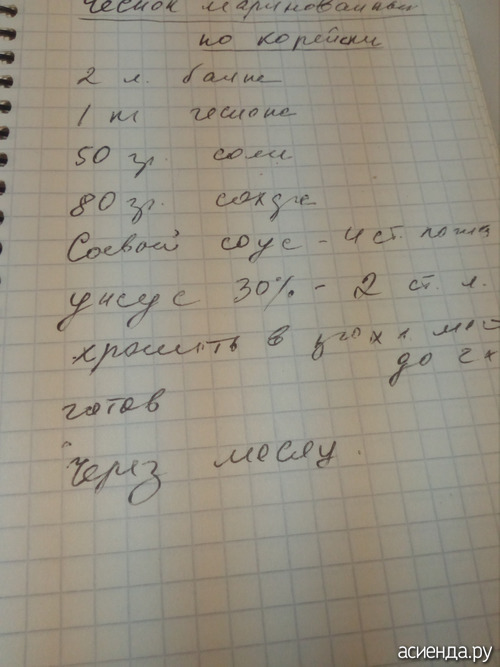 чеснок маринованный
по корейски
2 л. банка
1 кг чеснока
50 гр. соли
80 гр. сахара
Соевый соус - 4 ст. ложк
уксус 30% - 2 ст. л.
хранить в
до 2 х
готов
через месяц.
асиенда.ру